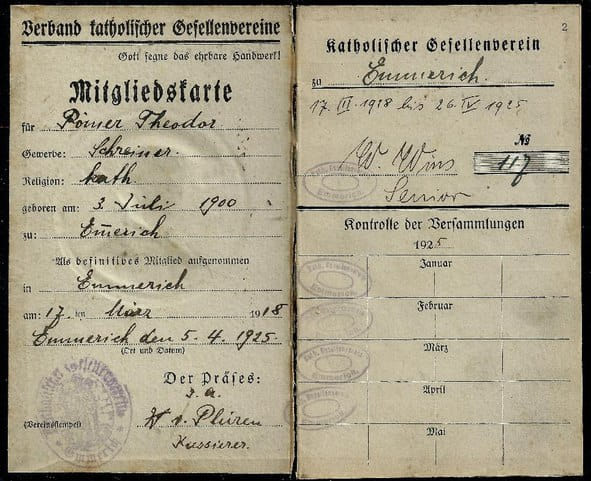 Verband katholischer Gesellenvereine
Gott segne das ehrbare Handwerk!
Mitgliedskarte
für Römer Theodor
Gewerbe: Schreiner
Religion: kath
geboren am: 3. Juli 1900
zu: Em̅erich
Als definitives Mitglied aufgenommen
in Emmerich
am: 17 ten März 1918
Emmerich den 5. 4. 1925.
(Ort und Datum)
Der Präses:
(Vereinsstempel)
Kassierer.
Emmerich
2
Katholischer Gesellenverein
zu Emmerich.
17. III. 1918 bis 26. IV 1925
No
117
W Wins
Senior
Kontrolle der Versammlungen
1925
Januar
Februar
März
April
Mai
Kath. Gesellenverein
Emmerich.